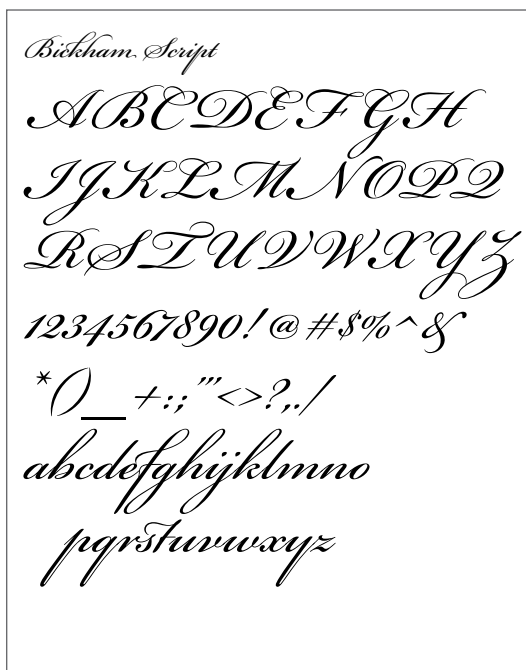 Bickham Script
ABCDEFGH
IJKLMNOPQ
RSTUVWXYZ
1234567890!@#$%^&
*()_+:;"'<>?,./
abcdefghijklmno
pqrstuvwxyz